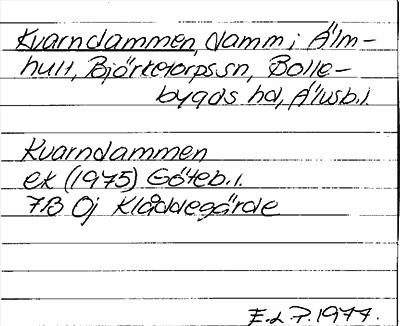 Kvarndammen, damm i Älm-
hult, Björketorps sn, Bolle-
bygds hd, Älvsb. l.
Kvarndammen
ek (1975) Göteb. l.
7B Oj Klåddegärde
E. L. P. 1977.